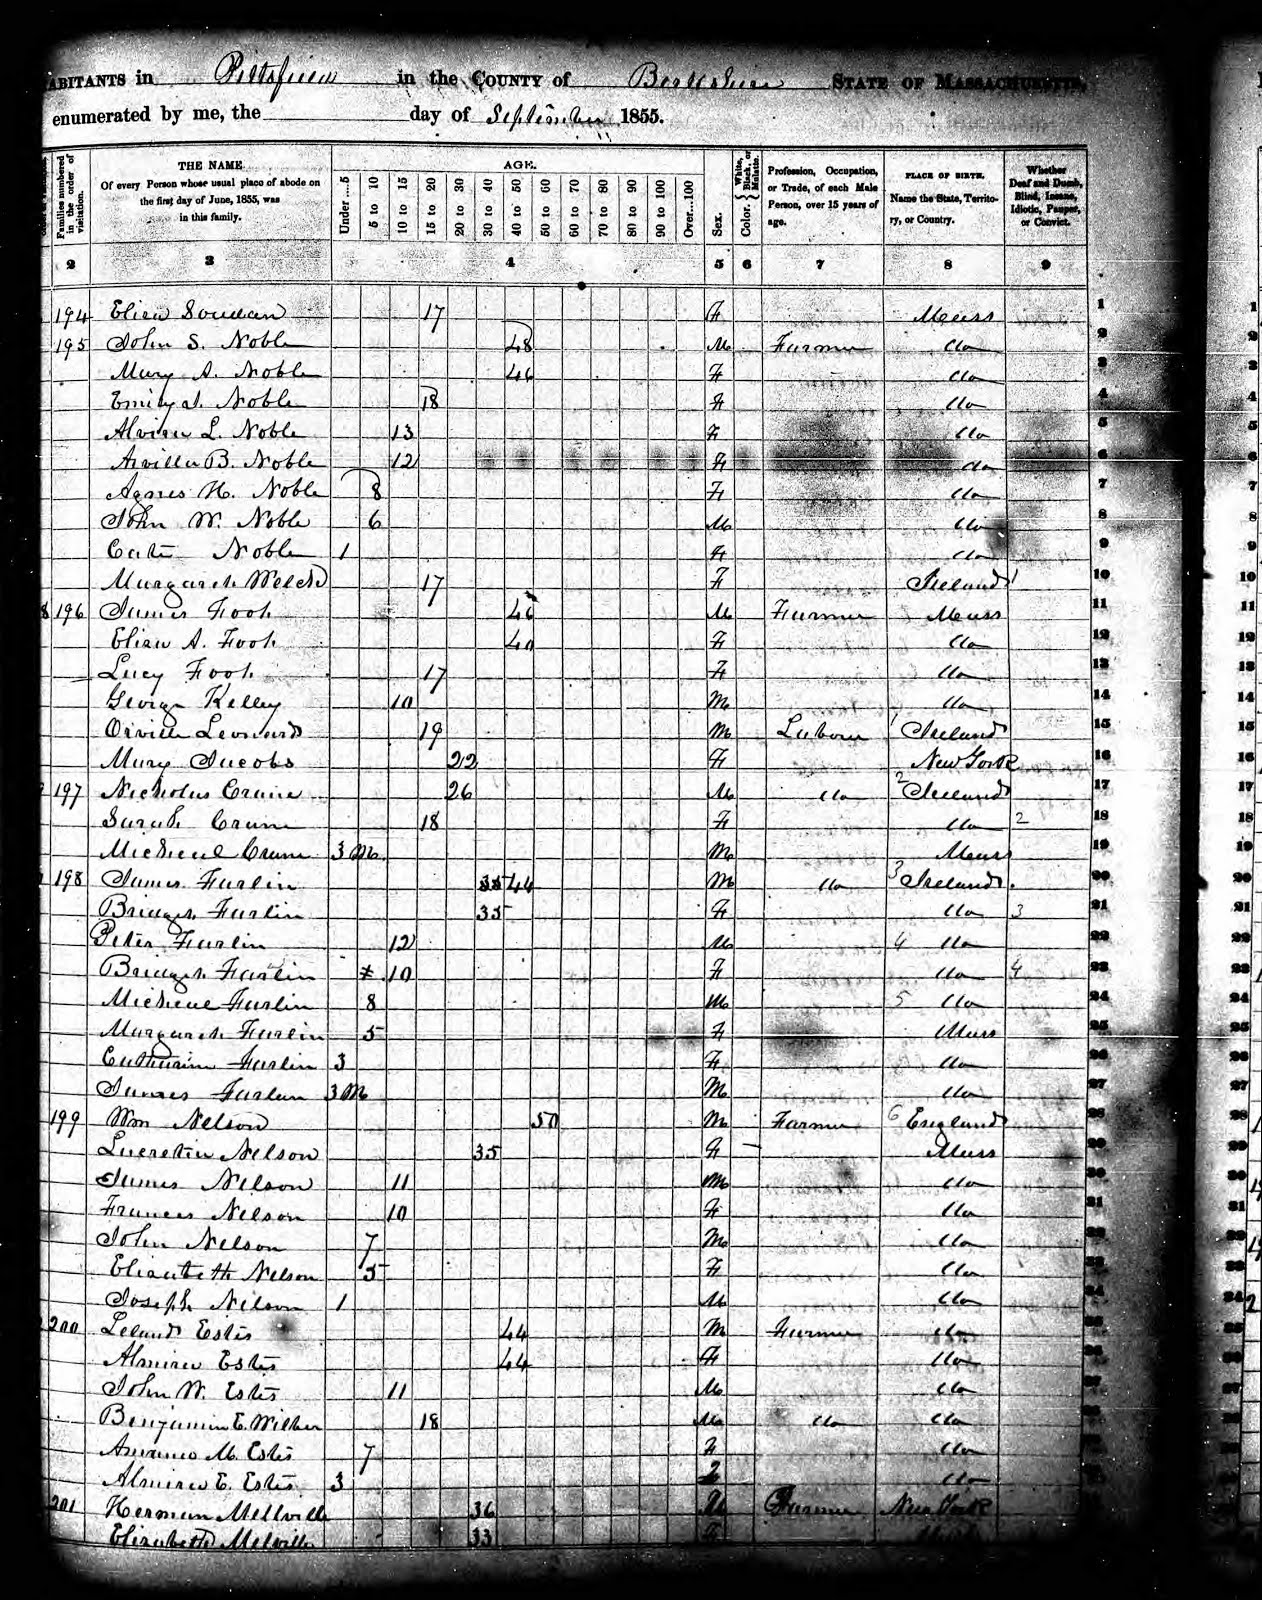 ABITANTS in Pittsfield in the COUNTY of Berkshire STATE OF MASSACHUSETTS,
enumerated by me, the day of September 1855.
Families numbered in the order of visitation.
THE NAME
Of every Person whose usual place of abode on the first day of June, 1855, was in this family.
AGE.
Under....5 5 to 10 10 to 15 15 to 20 20 to 30 30 to 40 40 to 50 50 to 60 60 to 70 70 to 80 80 to 90 90 to 100 Over...100
Sex.
Color. White, Black, or Mulatto.
Profession, Occupation, or Trade, of each Male Person, over 15 years of age.
PLACE OF BIRTH.
Name the State, Territory, or Country.
Whether Deaf and Dumb, Blind, Insane, Idiotic, Pauper, or Convict.
2 3 4 5 6 7 8 9
194 Eliza 17 F Mass 1
195 John S. Noble 48 M Farmer Do 2
Mary A. Noble 46 F Do 3
Emily J. Noble 18 F Do 4
L. Noble 13 F Do 5
Arvilla B. Noble 12 F Do 6
Agnes H. Noble 8 F Do 7
John W. Noble 6 M Do 8
Cate Noble 1 F Do 9
Margaret Welch 17 F Ireland 1 10
196 James Foot 46 M Farmer Mass 11
Eliza A. Foot 40 F Do 12
Lucy Foot 17 F Do 13
George Kelley 10 M Do 14
Orville Leonard 19 M Labour 1 Ireland 15
Mary Jacobs 22 F New York 16
197 Nicholas Crane 26 M Do 2 Ireland 17
Sarah Crane 18 F Do 2 18
Micheal Crane 3 M M Mass 19
198 James Farlin 35 44 M Do 3 Ireland 20
Bridget Farlin 35 F Do 3 21
Peter Farlin 12 M 4 Do 22
Bridget Farlin 10 F Do 4 23
Micheal Farlin 8 M 5 Do 24
Margaret Farlin 5 F Mass 25
Catharine Farlin 3 F Do 26
James Farlin 3 M M Do 27
199 Wm Nelson 50 M Farmer 6 England 28
Lucretia Nelson 35 F Mass 29
James Nelson 11 M Do 30
Frances Nelson 10 F Do 31
John Nelson 7 M Do 32
Elisabeth Nelson 5 F Do 33
Joseph Nelson 1 M Do 34
200 Leland Estes 44 M Farmer Do 35
Almira Estes 44 F Do 36
John W. Estes 11 M Do 37
Benjamin E. Wilber 18 M Do Do
M. Estes 7 F Do
Almira E. Estes 3 F Do
201 Herman Mellville 36 M Farmer New York
Elizabeth Melville 33 F